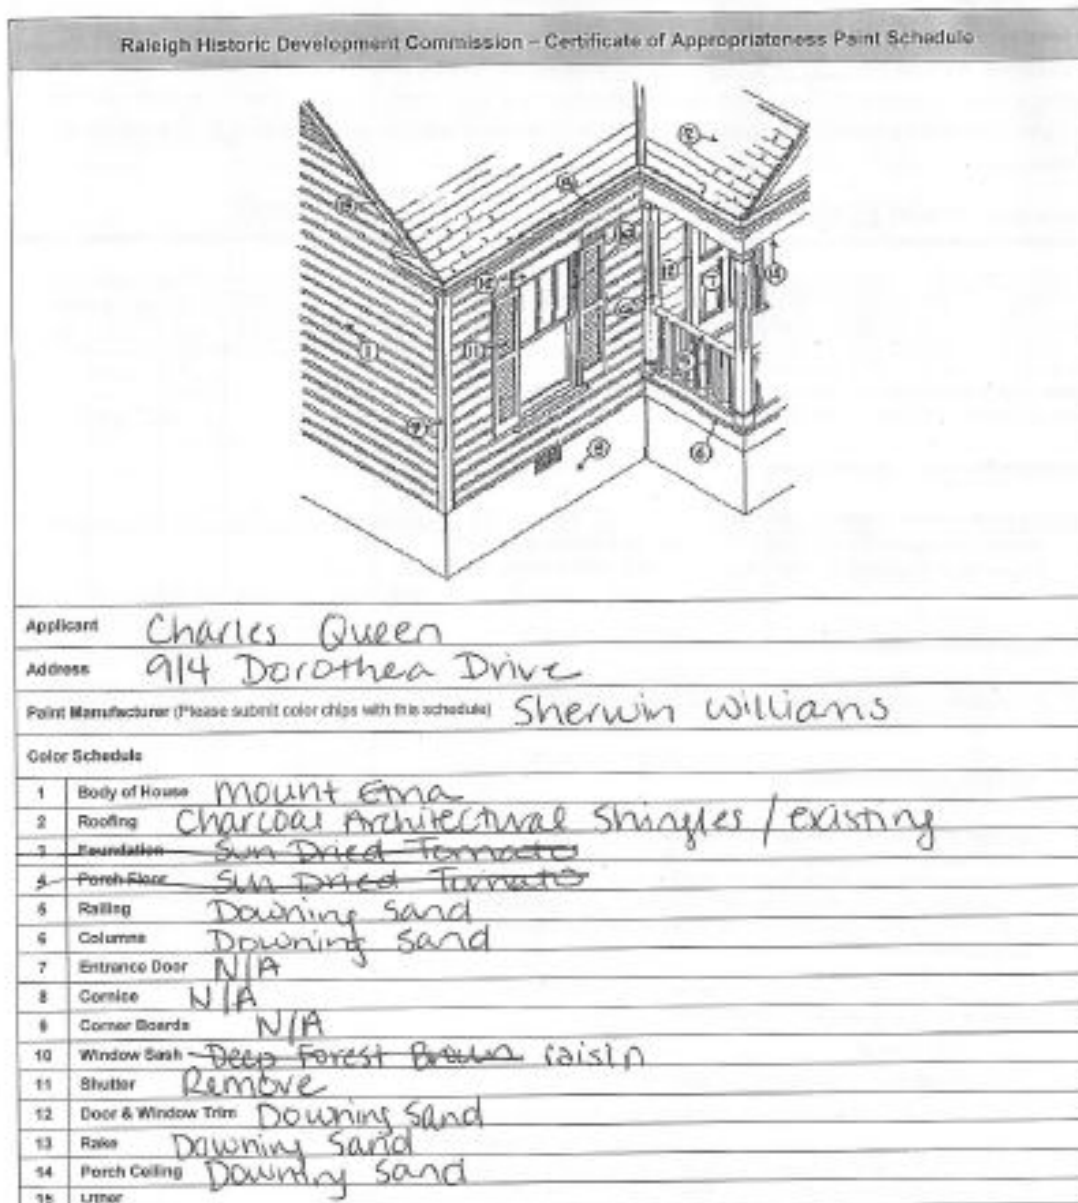 Raleigh Historic Development Commission – Certificate of Appropriateness Paint Schedule
Applicant Charles Queen
Address 914 Dorothea Drive
Paint Manufacturer (Please submit color chips with this schedule) Sherwin Williams
Color Schedule
1 Body of House Mount Etna
2 Roofing Charcoal Architectural Shingles / existing
3 Foundation Sun Dried Tomato
4 Porch Floor Sun Dried Tomato
5 Railing Downing Sand
6 Columns Downing Sand
7 Entrance Door N/A
8 Cornice N/A
9 Corner Boards N/A
10 Window Sash Deep Forest Brown raisin
11 Shutter Remove
12 Door & Window Trim Downing Sand
13 Rake Downing Sand
14 Porch Ceiling Downing Sand
15 Other